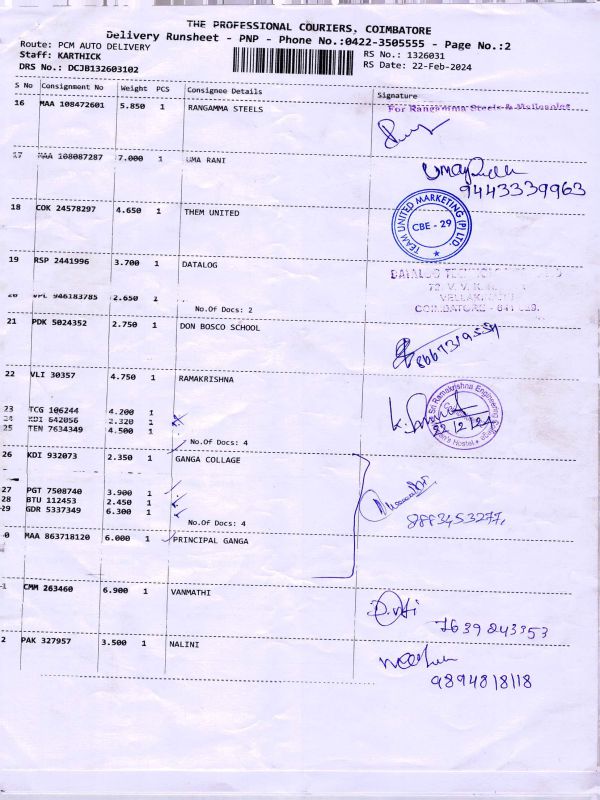 THE PROFESSIONAL COURIERS, COIMBATORE
Delivery Runsheet - PNP - Phone No.:0422-3505555 - Page No.:2
Route: PCM AUTO DELIVERY
Staff: KARTHICK
DRS No.: DCJB132603102
RS No.: 1326031
RS Date: 22-Feb-2024
S No Consignment No Weight PCS Consignee Details Signature
16 MAA 108472601 5.850 1 RANGAMMA STEELS
For Rangamma Steels &
17 MAA 108087287 7.000 1 UMA RANI
9443339963
18 COK 24578297 4.650 1 THEM UNITED
TEAM UNITED MARKETING (P) LTD.
CBE - 29
19 RSP 2441996 3.700 1 DATALOG
COIMBATORE - 641 029.
20 VPL 946183785 2.650 1
No.Of Docs: 2
21 PDK 5024352 2.750 1 DON BOSCO SCHOOL
22 VLI 30357 4.750 1 RAMAKRISHNA
Sri Ramakrishna Engineering College
Men's Hostel
22/2/24
23 TCG 106244 4.200 1
24 KDI 642056 2.320 1
25 TEN 7634349 4.500 1
No.Of Docs: 4
26 KDI 932073 2.350 1 GANGA COLLAGE
27 PGT 7508740 3.900 1
28 BTU 112453 2.450 1
29 GDR 5337349 6.300 1
No.Of Docs: 4
8883453277,
0 MAA 863718120 6.000 1 PRINCIPAL GANGA
1 CMM 263460 6.900 1 VANMATHI
7639243353
2 PAK 327957 3.500 1 NALINI
9894818118